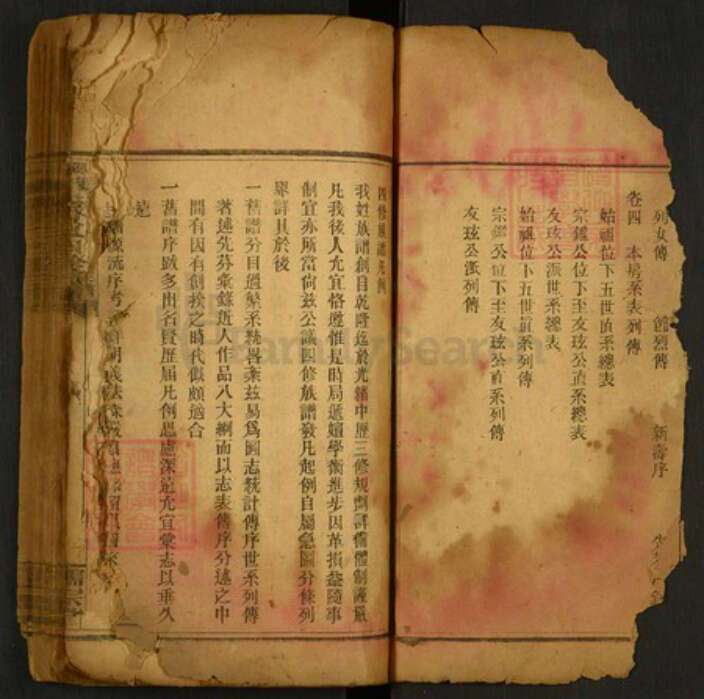 列女傳 節烈傳 新壽序
卷四 本房系表列傳
始祖位下五世直系總表
宗鑑公位下至友玹公直系總表
友玹公派世系總表
始祖位下五世直系列傳
宗鑑公位下至友玹公直系列傳
友玹公派列傳
四修族譜凡例
我姓族譜創自乾隆迄於光緒中歷三修規劃詳備體制謹嚴
凡我後人允宜恪遵惟是時局遞嬗學術進步因革損益隨事
制宜亦所當倘茲公議四修族譜發凡起例自屬急圖分條列
舉詳具於後
一舊譜分目過繁系統畧紊茲易為圖志統計傳序世系列傳
著述先芬彙錄近人作品八大綱而以志表傳序分述之中
間有因有創揆之時代似頗適合
一舊譜序跋多出名賢歷屆凡創思慮深遠允宜彙志以垂久
遠
源流序考
FamilySearch